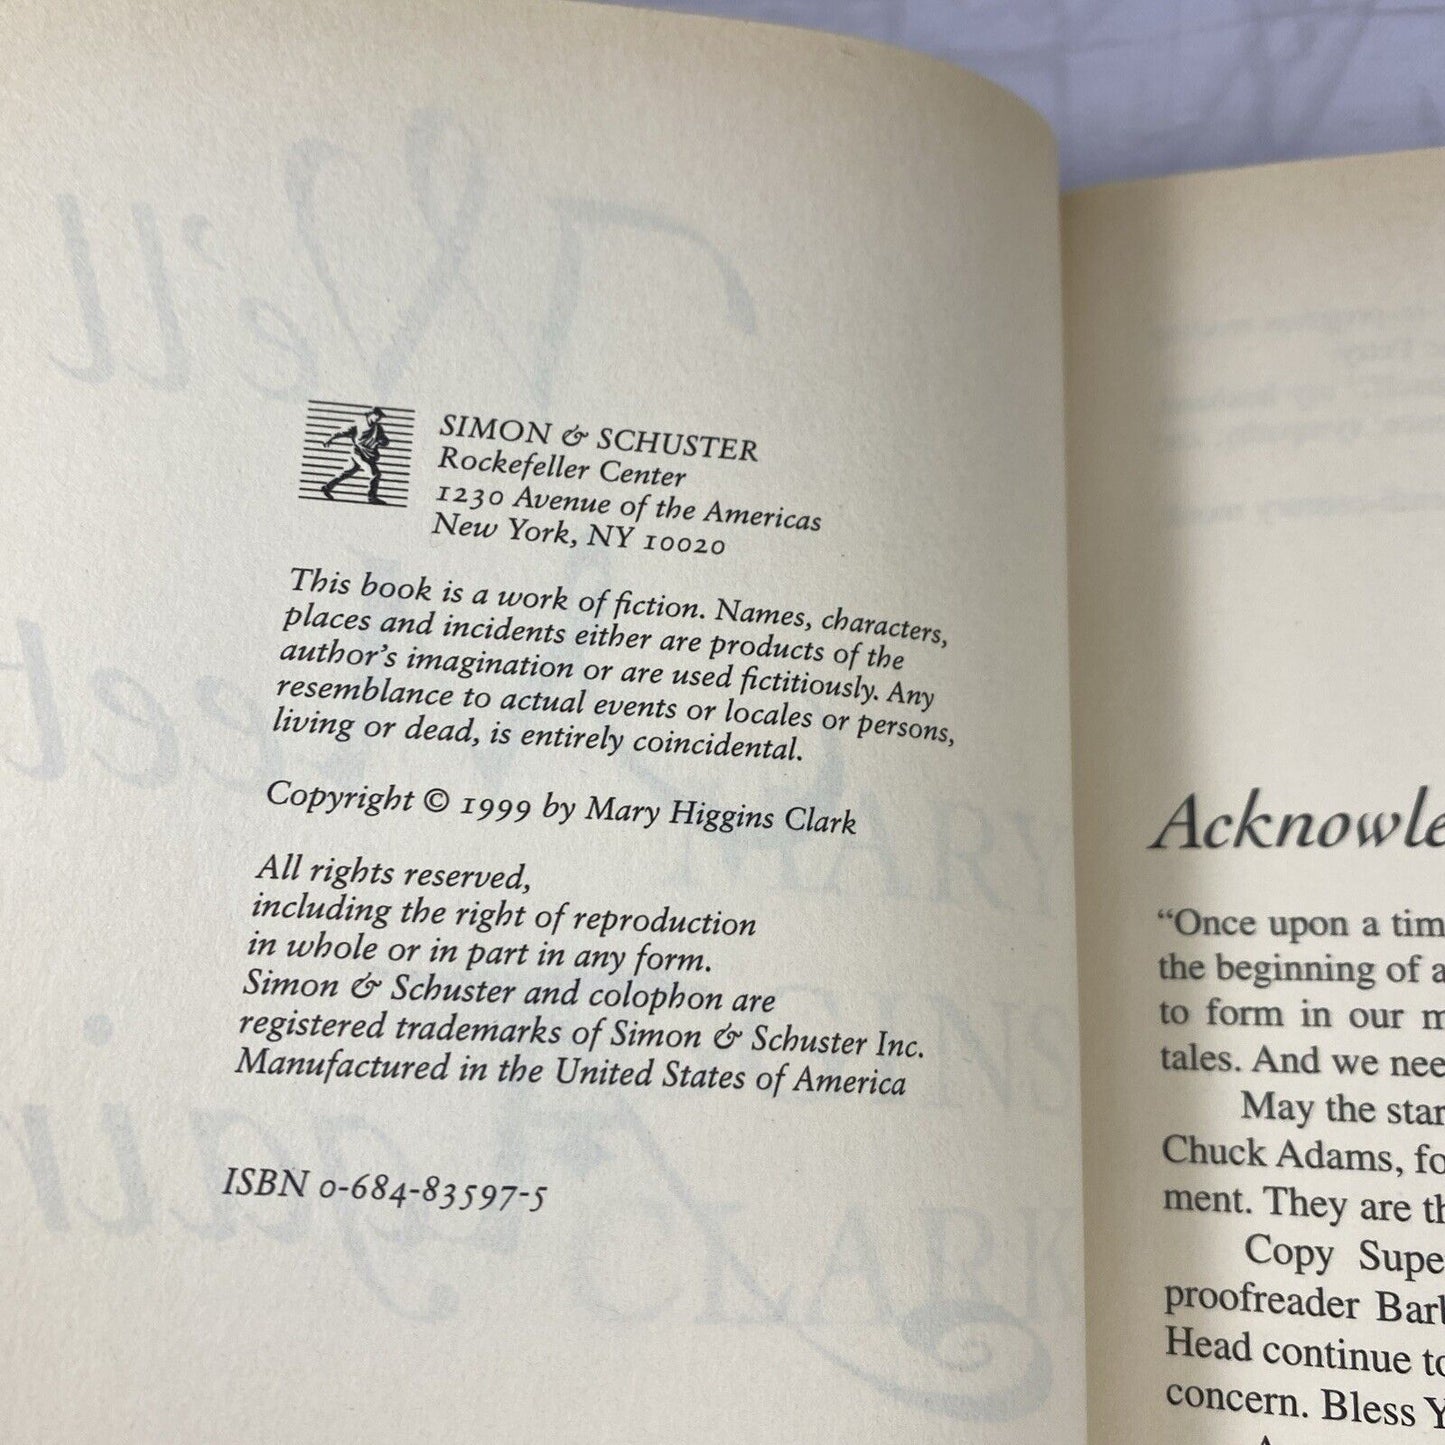 SIMON & SCHUSTER
Rockefeller Center
1230 Avenue of the Americas
New York, NY 10020
This book is a work of fiction. Names, characters,
places and incidents either are products of the
author's imagination or are used fictitiously. Any
resemblance to actual events or locales or persons,
living or dead, is entirely coincidental.
Copyright © 1999 by Mary Higgins Clark
All rights reserved,
including the right of reproduction
in whole or in part in any form.
Simon & Schuster and colophon are
registered trademarks of Simon & Schuster Inc.
Manufactured in the United States of America
ISBN 0-684-83597-5
Acknowle
“Once upon a tim
the beginning of a
to form in our m
tales. And we nee
May the star
Chuck Adams, fo
ment. They are th
Copy Supe
proofreader Barb
Head continue to
concern. Bless Y